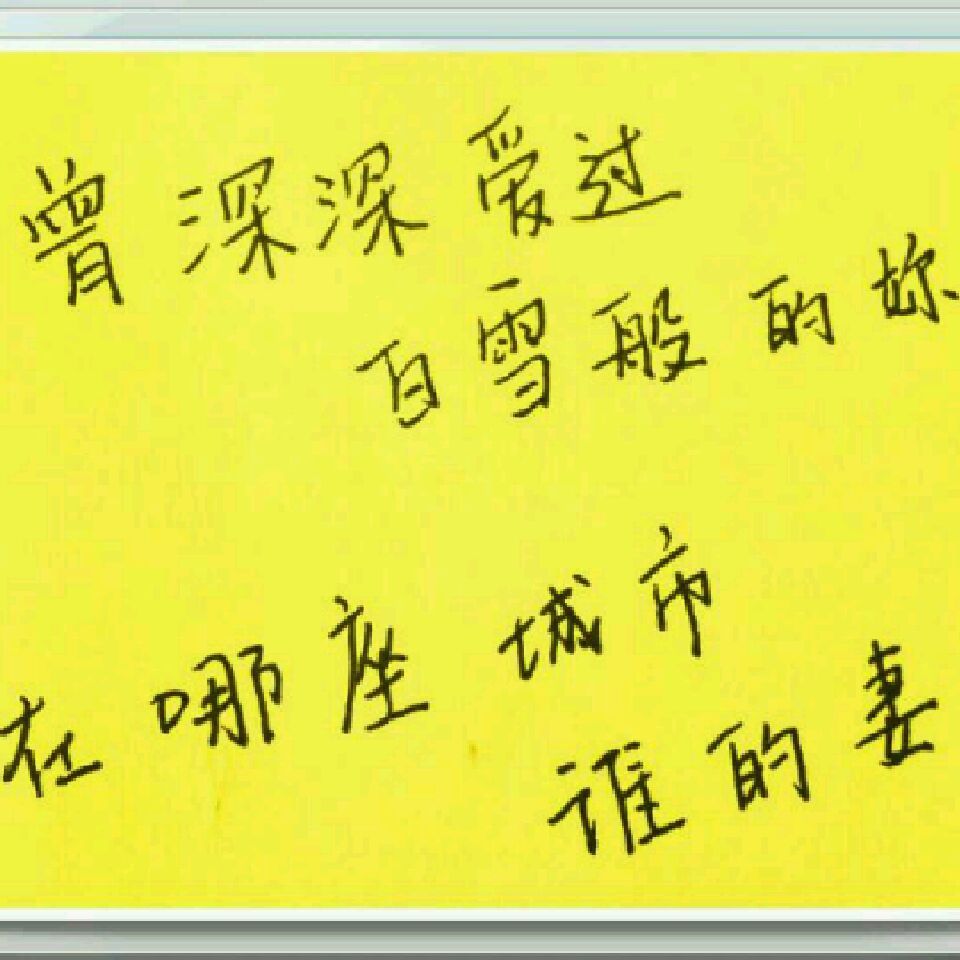 曾深深爱过
白雪般的妳
在哪座城市
谁的妻